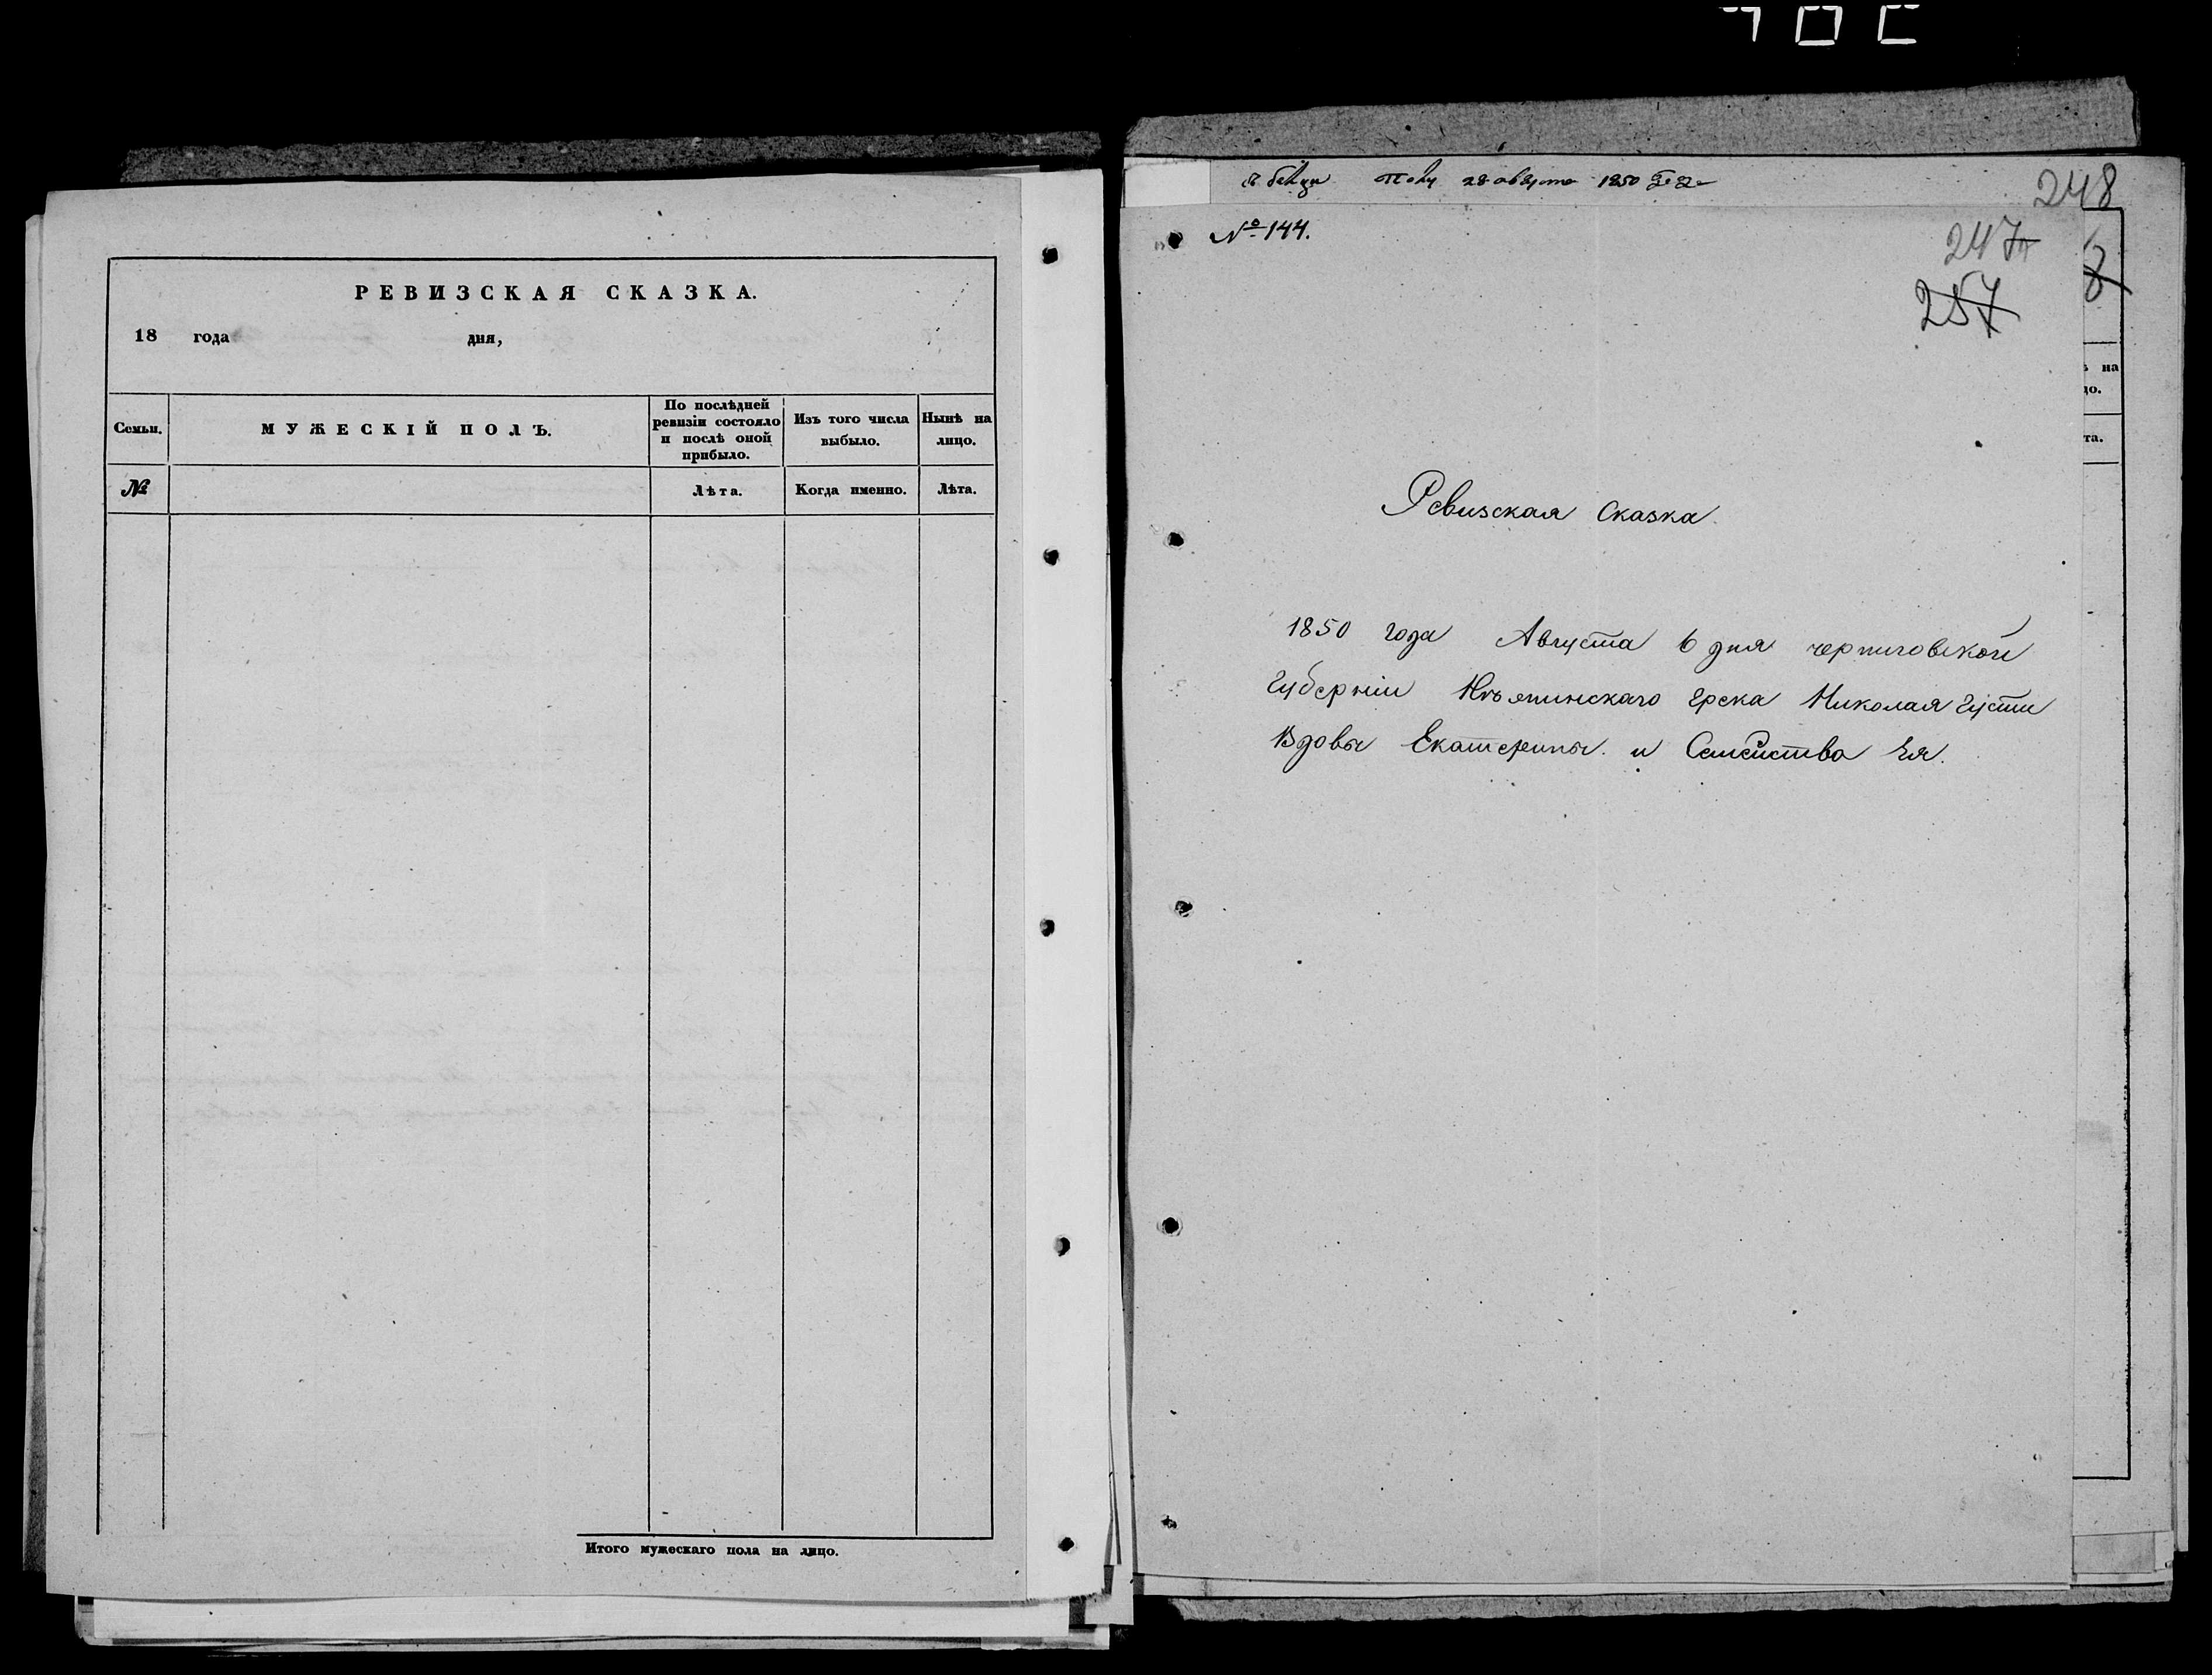 РЕВИЗСКАЯ СКАЗКА.
18 года дня,
Семьи.
МУЖЕСКІЙ ПОЛЪ.
По послѣдней
ревизіи состояло
и послѣ оной
прибыло.
Изъ того числа
выбыло.
Нынѣ на
лицо.
№
Лѣта.
Когда именно.
Лѣта.
Итого мужескаго пола на лицо.
28 августа 1850
248
№ 144.
247
257
8
ѣ на
цо.
та.
Ревизская сказка
1850 года Августа 6 дня черниговской
Губерніи Нѣжинскаго Грека Николая Густи
Вдовы Екатерины. и Семейства Ея.